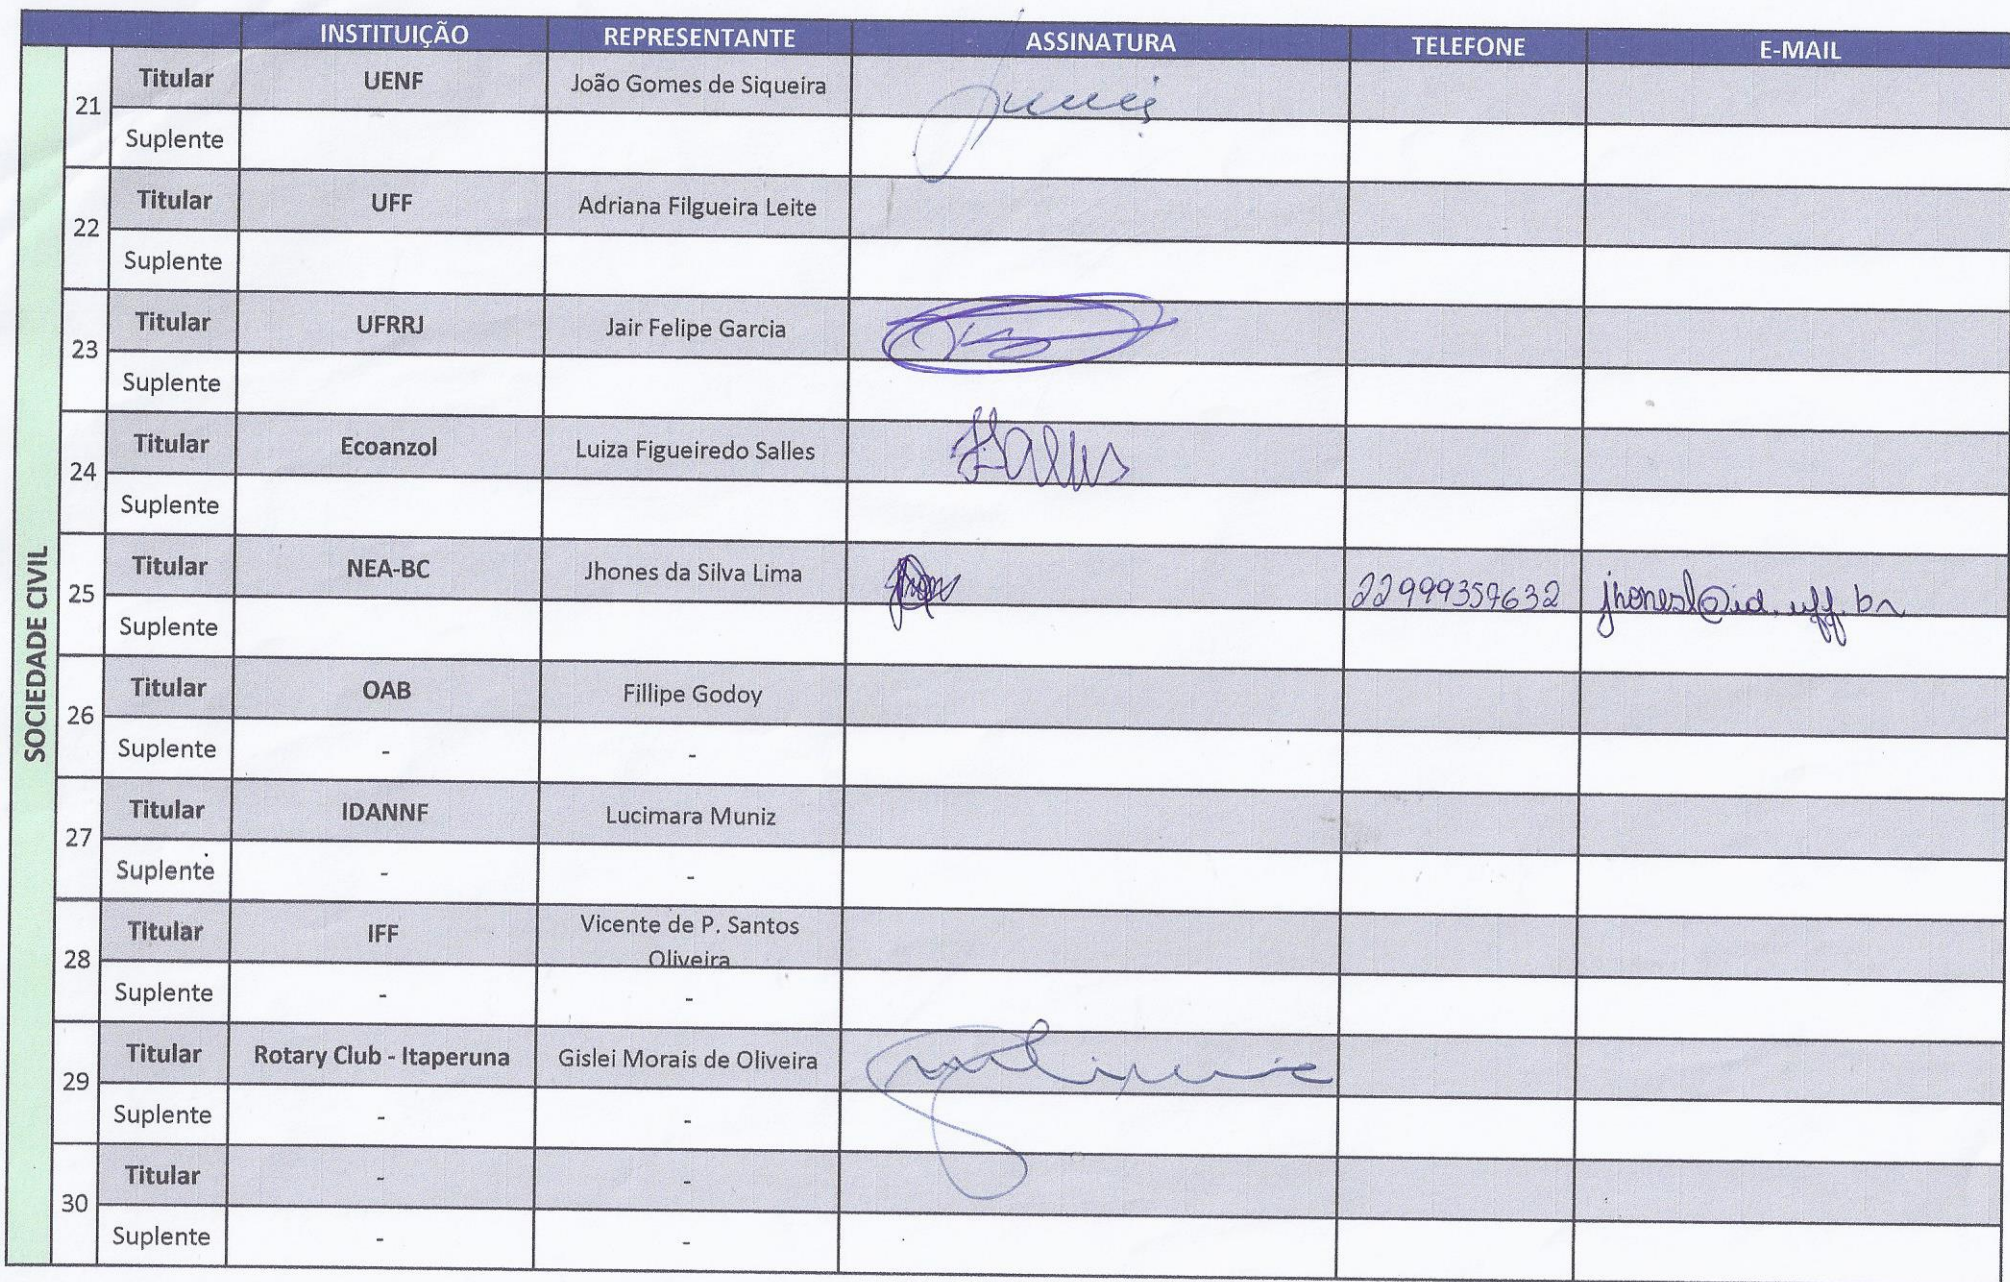 INSTITUIÇÃO REPRESENTANTE ASSINATURA TELEFONE E-MAIL
SOCIEDADE CIVIL
21 Titular UENF João Gomes de Siqueira
Suplente
22 Titular UFF Adriana Filgueira Leite
Suplente
23 Titular UFRRJ Jair Felipe Garcia
Suplente
24 Titular Ecoanzol Luiza Figueiredo Salles Salles
Suplente
25 Titular NEA-BC Jhones da Silva Lima 22999357632 jhonesl@id.uff.br
Suplente
26 Titular OAB Fillipe Godoy
Suplente - -
27 Titular IDANNF Lucimara Muniz
Suplente - -
28 Titular IFF Vicente de P. Santos
Oliveira
Suplente - -
29 Titular Rotary Club - Itaperuna Gislei Morais de Oliveira
Suplente - -
30 Titular - -
Suplente - -